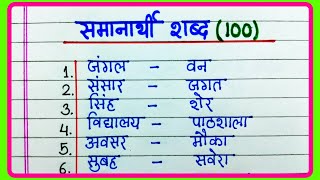 समानार्थी शब्द (100)
1. जंगल – वन
2. संसार – जगत
3. सिंह – शेर
4. विद्यालय – पाठशाला
5. अवसर – मौका
6. सुबह – सवेरा